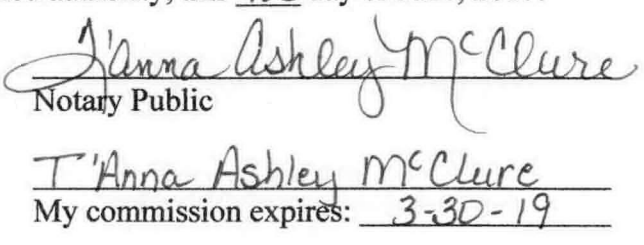 T'Anna Ashley McClure
Notary Public
T'Anna Ashley McClure
My commission expires: 3-30-19